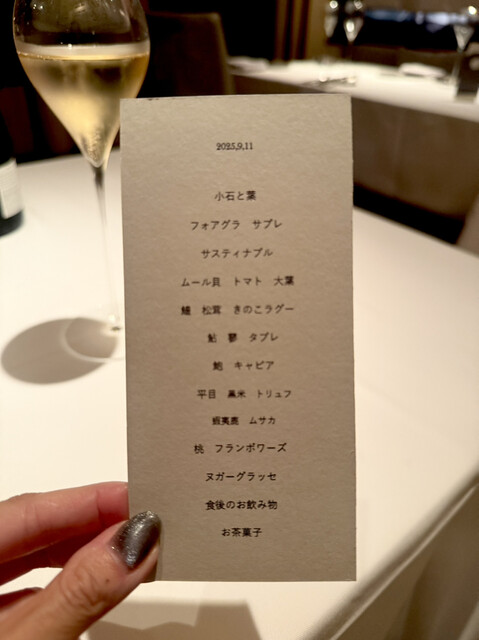 2025.9.11
小石と葉
フォアグラ サブレ
サスティナブル
ムール貝 トマト 大葉
鱧 松茸 きのこラグー
鮎 蓼 タブレ
鮑 キャビア
平目 黒米 トリュフ
蝦夷鹿 ムサカ
桃 フランボワーズ
ヌガーグラッセ
食後のお飲み物
お茶菓子